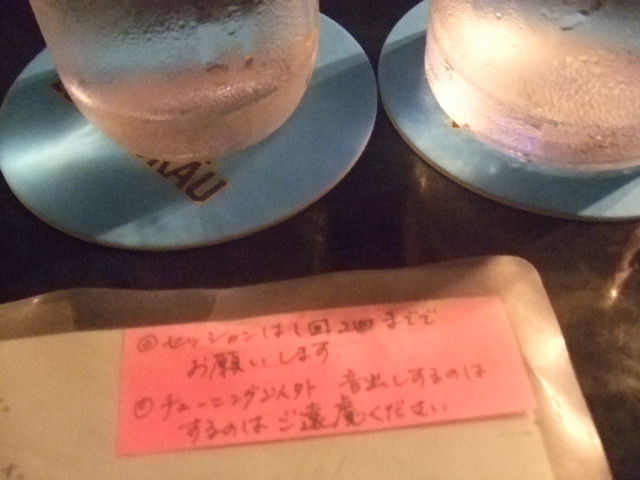 RÄU
◎セッションは1回2曲までで
お願いします.
◎チューニング以外 音出しするのは
するのはご遠慮ください